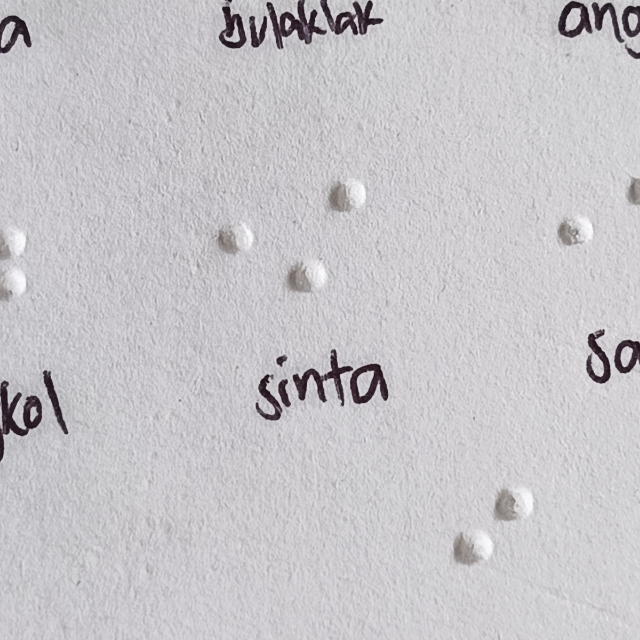 a bulaklak ang
kol sinta sa